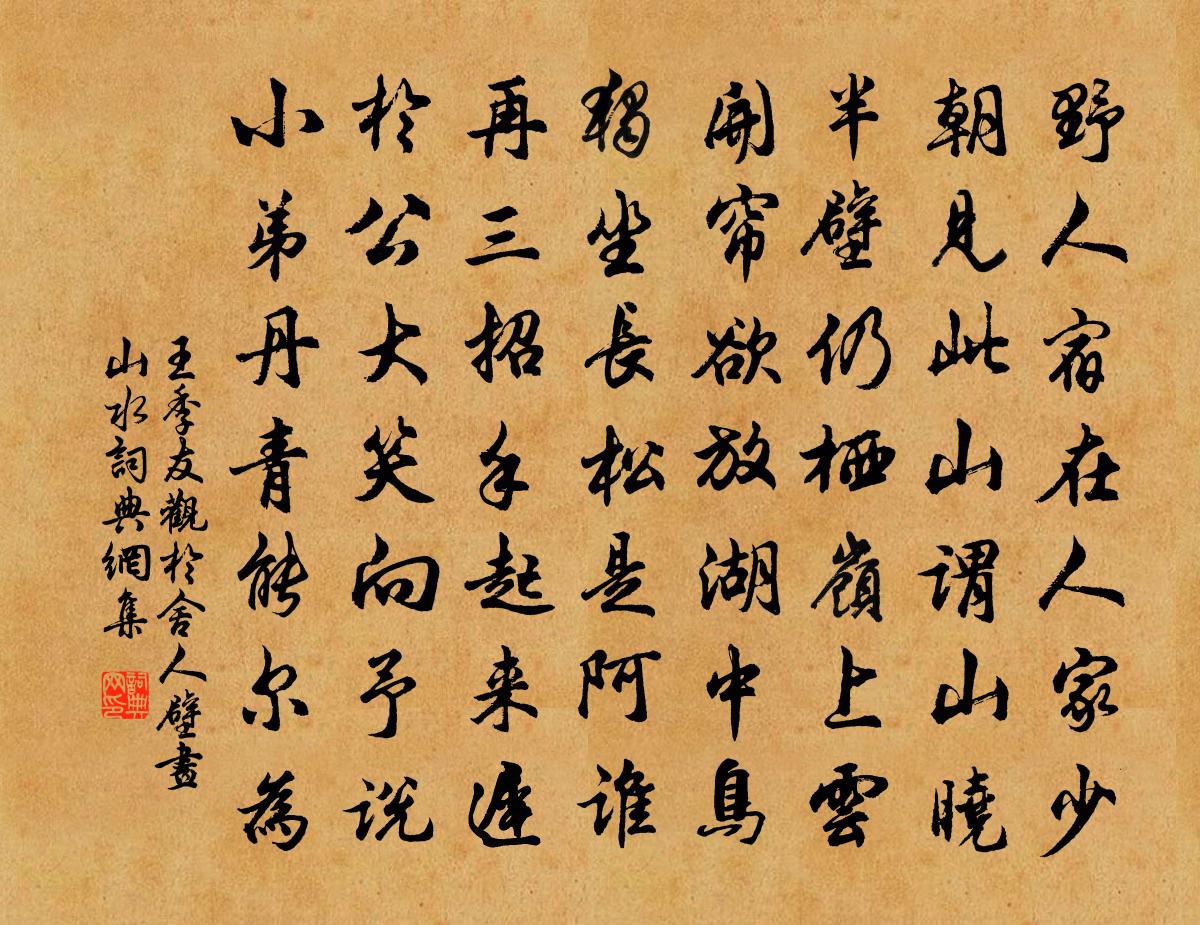 野人宿在人家少
朝見此山謂山曉
半壁仍栖嶺上雲
開帘欲放湖中鳥
獨坐長松是阿誰
再三招手起来遲
於公大笑向予説
小弟丹青能尔為
王季友觀於舍人壁畫
山水詞典網集
詞典網印